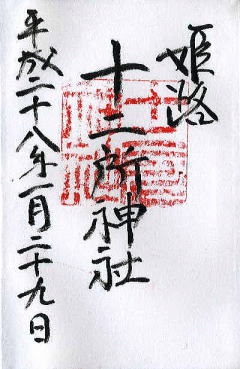 姫路
十二所神社
平成二十八年一月二十九日